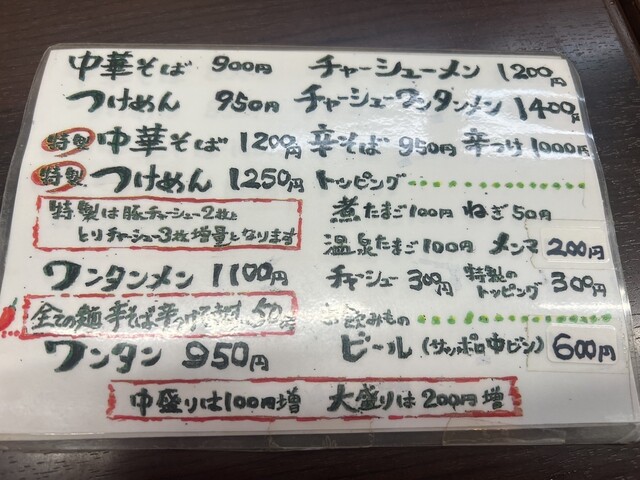 中華そば 900円 チャーシューメン 1200円
つけめん 950円 チャーシューワンタンメン 1400円
特製 中華そば 1200円 辛そば 950円 辛つけ 1000円
特製 つけめん 1250円 トッピング
特製は豚チャーシュー2枚と
とりチャーシュー3枚増量となります
煮たまご100円 ねぎ50円
温泉たまご100円 メンマ 200円
ワンタンメン 1100円 チャーシュー 300円 特製のトッピング 300円
全ての麺 辛そば 辛つけ 50円
お飲みもの
ワンタン 950円 ビール (サッポロ中ビン) 600円
中盛りは100円増 大盛りは200円増